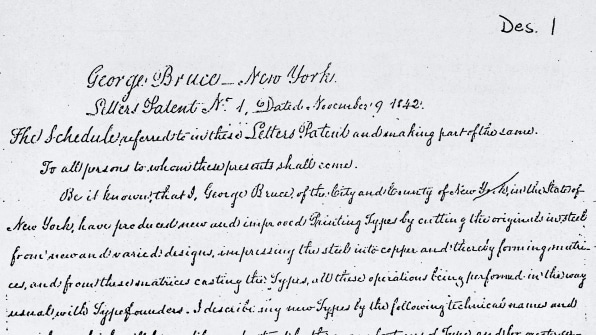 Des. 1
George Bruce - New York.
Letters Patent No. 1, Dated November 9 1842.
The Schedule referred to in these Letters Patent and making part of the same.
To all persons to whom these presents shall come.
Be it known, that I, George Bruce, of the City and County of New York, in the State of
New York, have produced new and improved Printing Types by cutting the originals in steel
from new and varied designs, impressing the steel into copper and thereby forming matri-
ces, and from these matrices casting the Types, all these operations being performed in the way
usual with Type founders. I describe my new Types by the following technical names and